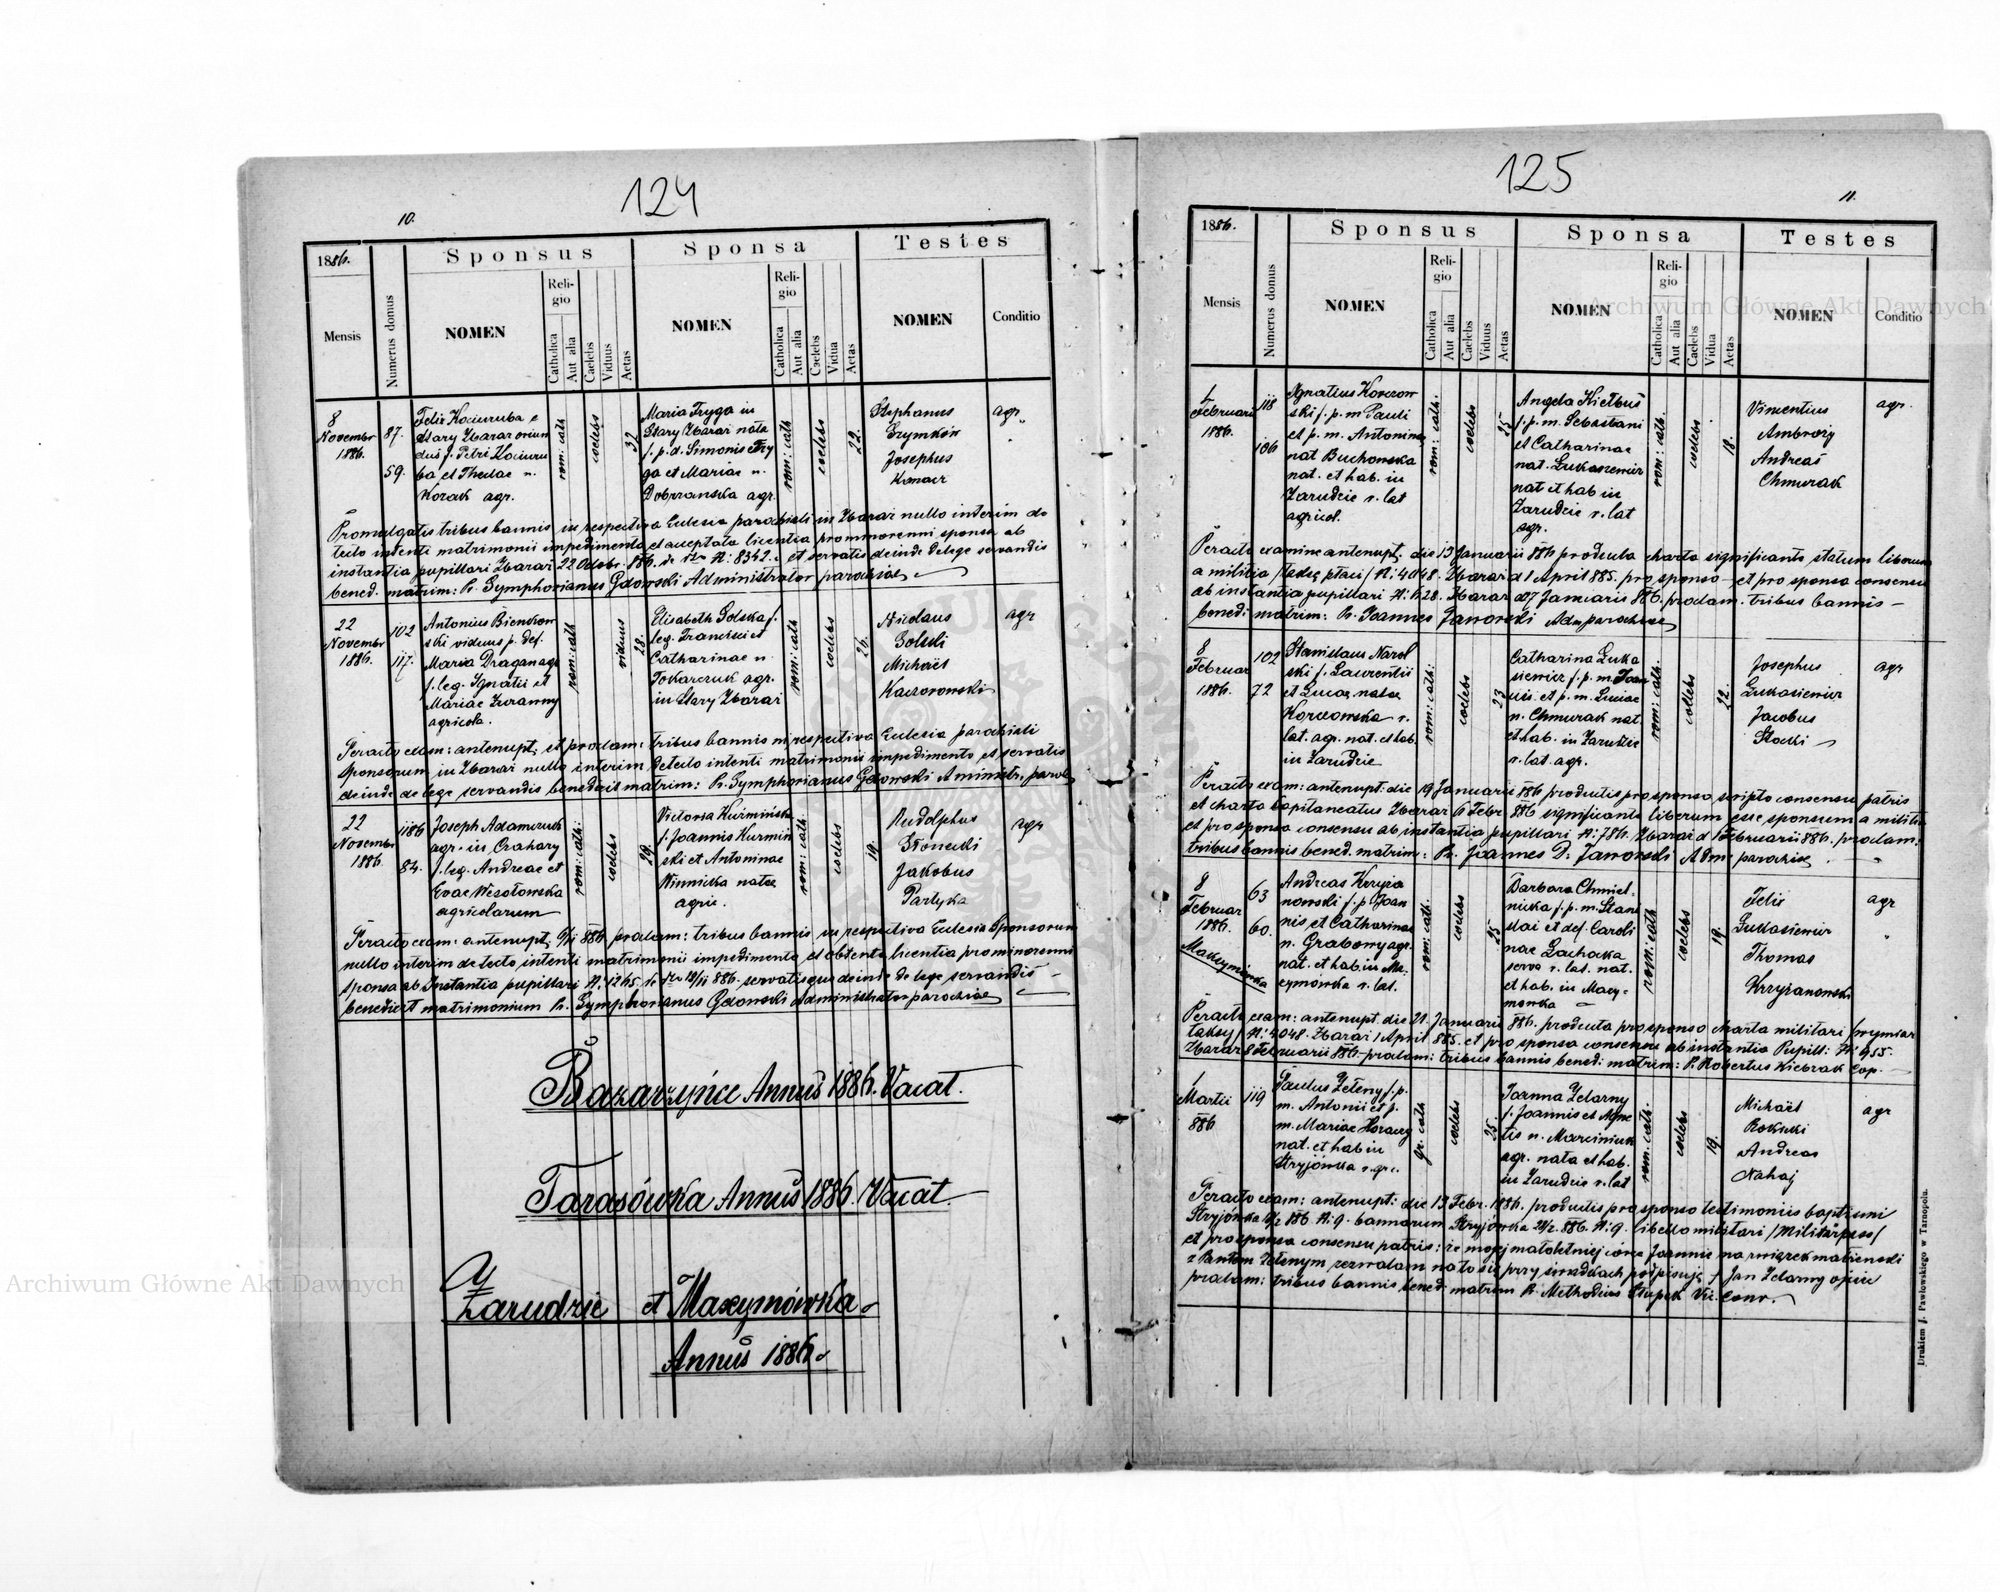 124
10.
1886.
Mensis
Numerus domus
Sponsus
NOMEN
Reli-
gio
Catholica
Aut alia
Caelebs
Viduus
Aetas
Sponsa
NOMEN
Reli-
gio
Catholica
Aut alia
Caelebs
Vidua
Aetas
Testes
NOMEN
Conditio
8
Novembr
1886.
87.
59.
Felix Kociuruba e
Stary Zbaraż oriun
dus f. Petri Kociuru
ba et Theclae n.
Kozak agr.
rom: cath
coelebs
32
Maria Fryga in
Stary Zbaraż nata
f. p. d. Simonis Fry
ga et Mariae n.
Dobrzanska agr.
rom: cath
coelebs
22.
Stephanus
Szymków
Josephus
agr.
Promulgatis tribus bannis in respectiva Ecclesia parochiali in Zbaraż nullo interim de
tecto intenti matrimonii impedimento et acceptata licentia pro minorenni sponsa ab
instantia pupillari Zbaraż 22 Octobr. 886. N: 8342. et servatis deinde de lege servandis
bened. matrim: Pr. Symphorianus Gdowski Administrator parochiae
22
Novembr
1886.
102
117.
Antonius Bienkow
ski viduus p. def.
Maria Dragan agr
f. leg. Ignatii et
Mariae Zuranny
agricola.
rom: cath
viduus
28.
Elisabeth Golska f.
leg. Francisci et
Catharinae n.
Tokarczuk agr.
in Stary Zbaraż
rom: cath
coelebs
26.
Nicolaus
Golski
Michaël
Kaczorowski
agr
Peracto exam: antenupt. et proclam: tribus bannis in respectiva Ecclesia parochiali
sponsorum in Zbaraż nullo interim detecto intenti matrimonii impedimento et servatis
deinde de lege servandis benedixit matrim: Pr. Symphorianus Gdowski Aministr. paroch
22
Novembr
1886.
1186
84.
Joseph Adamczuk
agr. in Czahary
f. leg. Andreae et
Evae Wesołowska
agricolarum
rom: cath:
coelebs
29.
Victoria Kuźmińska
f. Joannis Kuzmin
ski et Antoninae
Winnicka natae
agric.
rom: cath
coelebs
19.
Rudolphus
Słoniecki
Jakobus
Partyka
agr
Peracto exam: antenupt. 9/11 886. proclam: tribus bannis in respectiva Ecclesia Sponsorum
nullo interim detecto intenti matrimonii impedimento et obtenta licentia pro minorenni
sponsa ab Instantia pupillari N: 4265. 12/11 886. servatisque deinde de lege servandis
benedixit matrimonium Pr. Symphorianus Gdowski Administrator parochiae
Bazarzyńce Annus 1886. Vacat.
Tarasówka Annus 1886. Vacat
Zarudzie et Maxymówka
Annus 1886.
125
11.
1886.
Mensis
Numerus domus
Sponsus
NOMEN
Reli-
gio
Catholica
Aut alia
Caelebs
Viduus
Aetas
Sponsa
NOMEN
Reli-
gio
Catholica
Aut alia
Caelebs
Vidua
Aetas
Testes
NOMEN
Conditio
Februarii
1886.
118
106
Ignatius Korczow
ski f. p. m Pauli
et p. m. Antoninae
nat Buchowska
nat. et hab. in
Zarudzie r. lat
agricol.
rom: cath.
coelebs
25
Angela Kiełbuś
f. p. m. Sebastiani
et Catharinae
nat. Lukasiewicz
nat et hab in
Zarudzie r. lat
agr.
rom: cath.
coelebs
18.
Vincentius
Ambroży
Andreas
Chmurak
agr.
Peracto examine antenupt. die 13 Januarii 886 producta charta significante statum liberum
a militia /taksę płaci/ N: 4048. Zbaraż d 1 April 885. pro sponso et pro sponsa consensu
ab instantia pupillari N: 628. Zbaraż d 27 Januaris 886. proclam. tribus bannis
bened: matrim: Pr. Joannes Jaworski Adm parochiae
8
Februar
1886.
102
72
Stanislaus Narol
ski f. Laurentii
et Luciae natae
Korczowska r.
lat. agr. nat. et hab.
in Zarudzie
rom: cath:
coelebs
23
Catharina Luka
siewicz f. p. m. Joan
nis et p. m. Luciae
n. Chmurak nat.
et hab. in Zarudzie
r. lat. agr.
rom: cath.
coelebs
22.
Josephus
Lukasiewicz
Jacobus
Słocki
agr
Peracto exam: antenupt: die 19 Januarii 886 productis pro sponso scripto consensu patris
et charta Capitaneatus Zbaraż 6 Febr. 886 significante liberum esse sponsum a militia
et pro sponsa consensu ab instantia pupillari N: 786. Zbaraż d 1 Februarii 886. proclam.
tribus bannis bened. matrim: Pr. Joannes D: Jaworski Adm. parochiae
8
Februar
1886.
Maksymówka
63
60.
Andreas Krzyża
nowski f. p Joan
nis et Catharinae
n. Grabony agr.
nat. et hab in Ma.
xymowka r. lat.
rom: cath.
coelebs
25
Barbara Chmiel.
nicka f. p. m. Stani
slai et def. Caroli
nae Lachocka
serva r. lat. nat.
et hab. in Maxy=
mowka
rom: cath
coelebs
19.
Felix
Lukasiewicz
Thomas
Krzyżanowski
agr
Peracto exam: antenupt. die 21. Januarii 886. producta pro sponso charta militari /wymiar
taksy/ N: 4048. Zbaraż 1 April 885. et pro sponsa consensu ab instantia Pupill: N: 955.
Zbaraż 8 Februarii 886. proclam: tribus bannis bened: matrim: P. Robertus Wiebrak Cop.
1
Martii
886
119
Paulus Zełeny f. p.
m. Antonii et p.
m. Mariae
nat. et hab in
Stryjówka r. gr.
gr. cath
coelebs
25.
Joanna Zelarny
f. Joannis et Agne
tis n. Marciniuk
agr. nata et hab.
in Zarudzie r. lat
rom: cath.
coelebs
19.
Michaël
Rokicki
Andreas
Nahaj
agr
Peracto exam: antenupt: die 13 Febr. 1886. productis pro sponso testimoniis baptismi
Stryjówka 886. N: 9. bannorum Stryjówka 886. N: 9. libello militari /Militärpass/
et pro sponsa consensu patris: że mojej małoletniej córce Joannie na związek małżeński
z Pawłem Zełenym zezwalam na to się przy świadkach podpisuję + Jan Zelarny ojciec
proclam: tribus bannis bened: matrim P. Methodius Vic. Conv.
Drukiem J. Pawłowskiego w Tarnopolu.
Archiwum Główne Akt Dawnych
Archiwum Główne Akt Dawnych